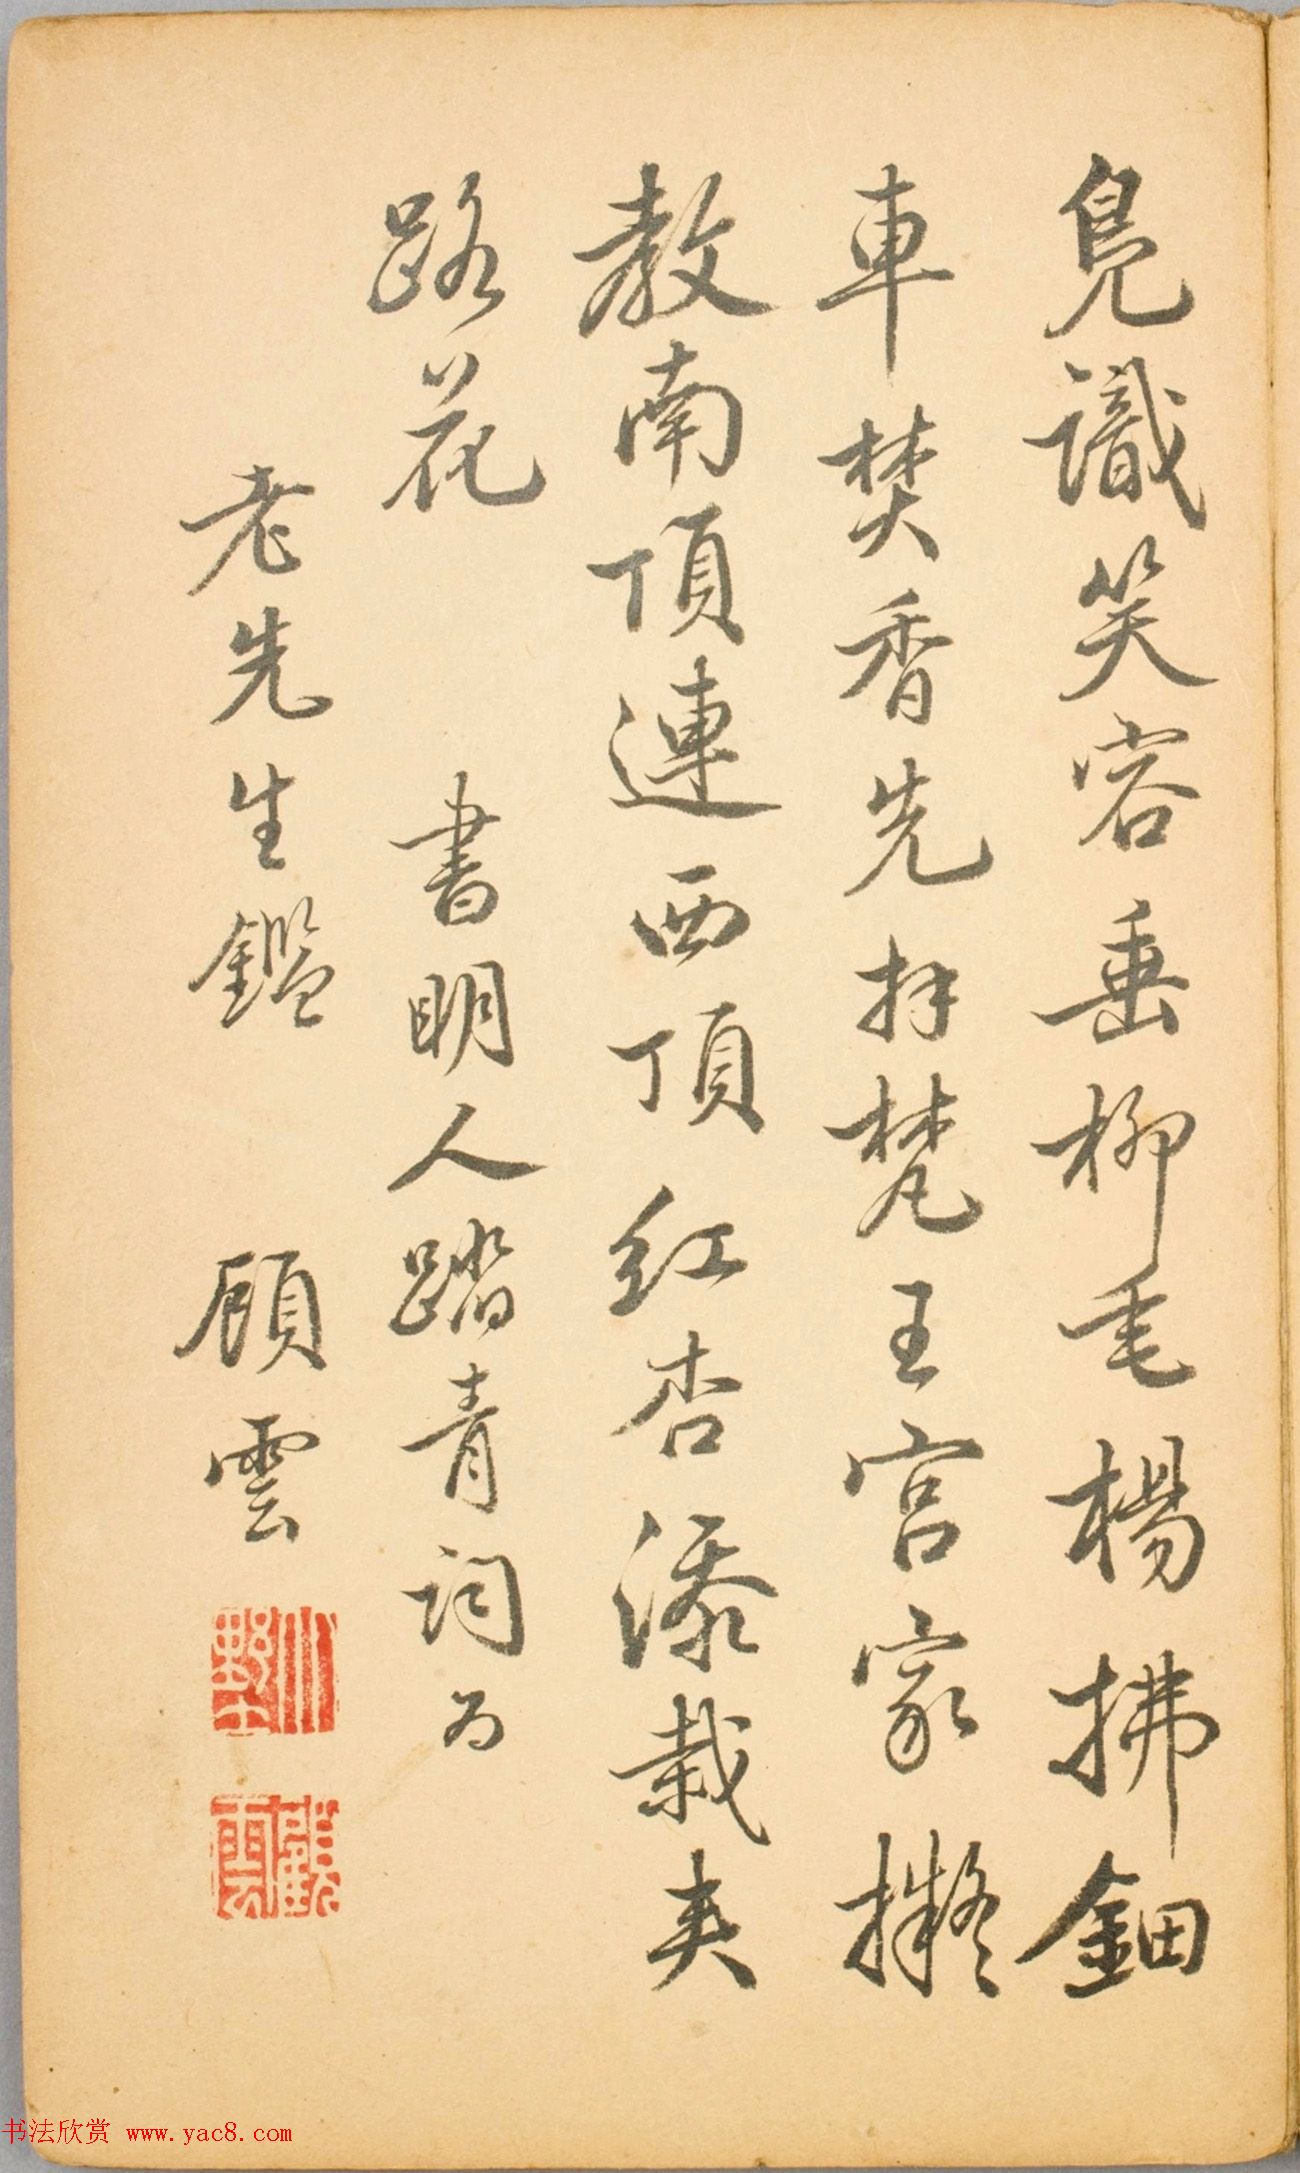 皃識笑容垂柳毛楊拂鈿
車焚香先拜梵王宮家擬
教南頂連西頂紅杏添栽夾
路花
書明人踏青詞為
老先生鑑 顧雲
顧雲
书法欣赏 www.yac8.com